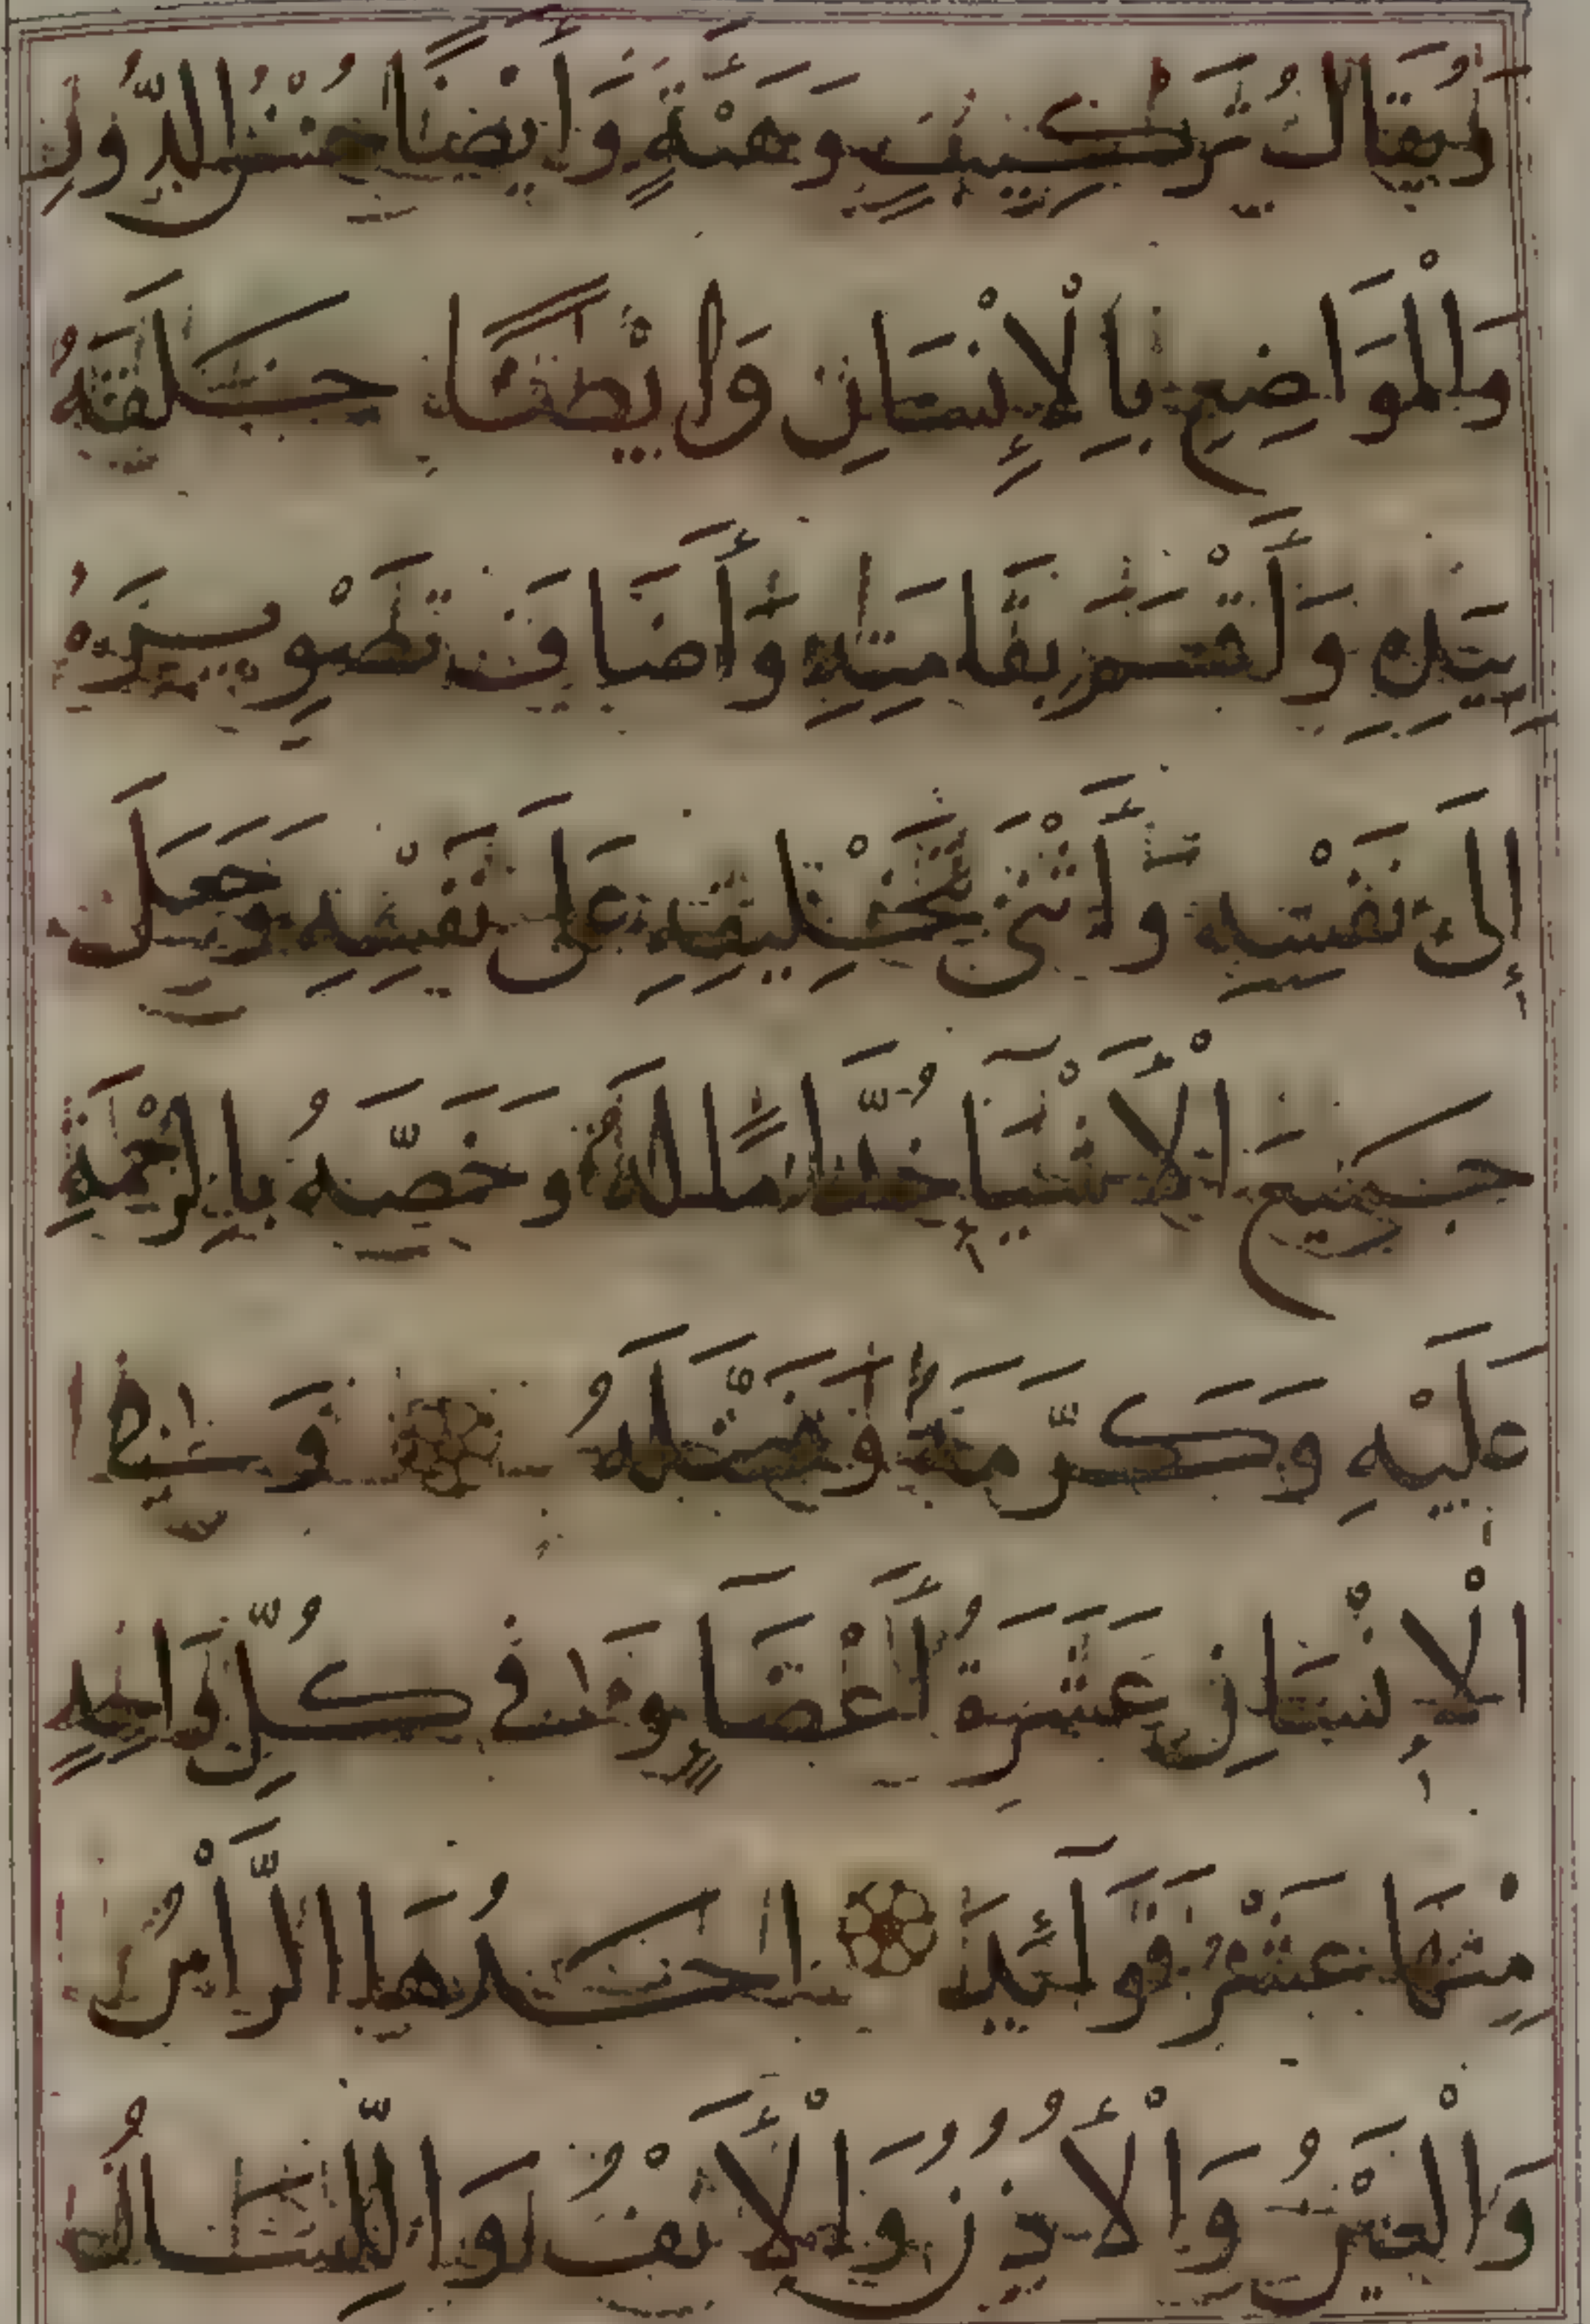 وَيُقَالُ تَرْكِيبٍ وَهَيْئَةٍ وَأَيْضًا حُسْنُ الدُّولِ
وَالْمَوَاضِعِ بِالْإِنْسَانِ وَايْضًا خَلَقَهُ
بِيَدِهِ وَأَقْسَمَ بِقَامَتِهِ وَأَضَافَ تَصْوِيرَهُ
إِلَى نَفْسِهِ وَأَثْنَى بِتَخْلِيقِهِ عَلَى نَفْسِهِ وَجَعَلَ
جَمِيعَ الْأَشْيَاءِ خُدَّامًا لَهُ وَخَصَّهُ بِالرَّحْمَةِ
عَلَيْهِ وَكَرَّمَهُ وَفَضَّلَهُ
الْإِنْسَانِ عَشَرَةُ أَعْضَاءٍ وَفِي كُلِّ وَاحِدٍ
مِنْهَا عَشْرُ فَوَآئِدَ احَدُهَا الرَّأْسُ
وَالْعَيْنُ وَالْأُذُنُ وَالْأَنْفُ وَاللِّسَانُ